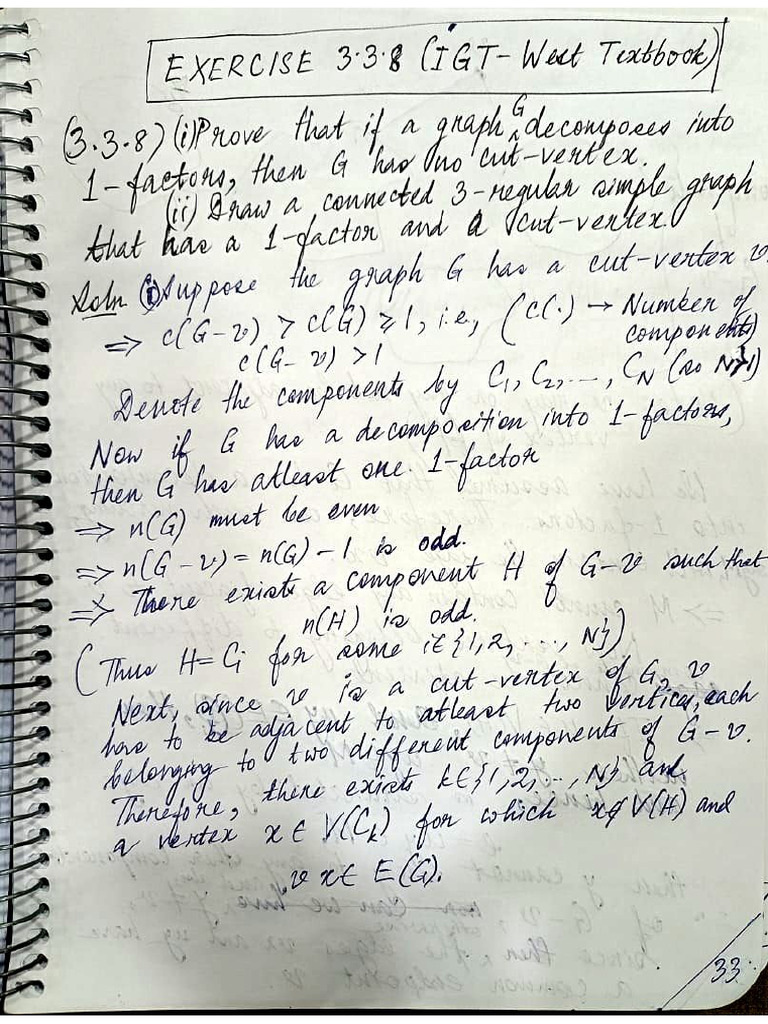 EXERCISE 3.3.8 (IGT - West Textbook)
(3.3.8) (i) Prove that if a graph G decomposes into
1-factors, then G has no cut-vertex.
(ii) Draw a connected 3-regular simple graph
that has a 1-factor and a cut-vertex.
Soln (i) Suppose the graph G has a cut-vertex v.
⇒ c(G-v) > c(G) ≥ 1, i.e., (c(.) → Number of
components)
c(G-v) > 1
Denote the components by C₁, C₂, ..., C_N (so N>1)
Now if G has a decomposition into 1-factors,
then G has atleast one 1-factor
⇒ n(G) must be even
⇒ n(G-v) = n(G) - 1 is odd.
⇒ There exists a component H of G-v such that
n(H) is odd.
(Thus H = Cᵢ for some i∈{1,2, ..., N})
Next, since v is a cut-vertex of G, v
has to be adjacent to atleast two vertices, each
belonging to two different components of G-v.
Therefore, there exists k∈{1,2, ..., N} and
a vertex x ∈ V(C_k) for which x∉V(H) and
vx ∈ E(G).
33